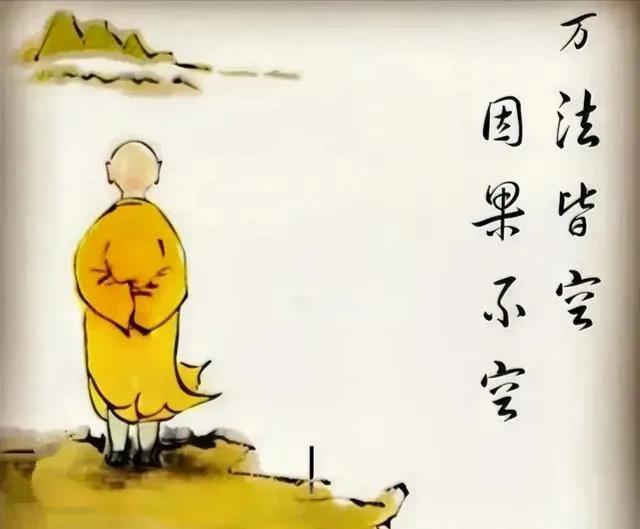 万法皆空
因果不空